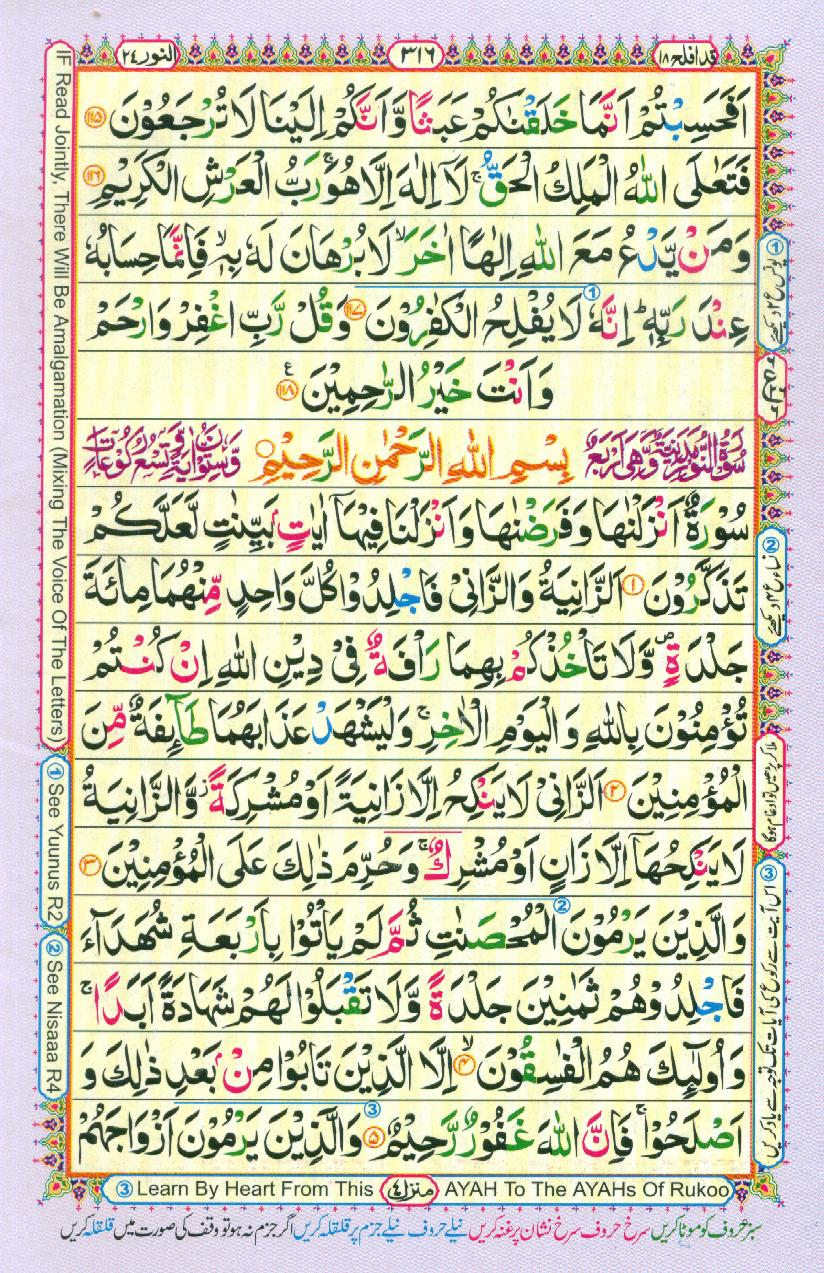 قد افلح ١٨
٣١٦
النور ٢٤
اَفَحَسِبْتُمْ اَنَّمَا خَلَقْنٰكُمْ عَبَثًا وَّاَنَّكُمْ اِلَيْنَا لَا تُرْجَعُوْنَ ﴿١١٥﴾
فَتَعٰلَى اللّٰهُ الْمَلِكُ الْحَقُّ ۚ لَاۤ اِلٰهَ اِلَّا هُوَ ۚ رَبُّ الْعَرْشِ الْكَرِيْمِ ﴿١١٦﴾
وَمَنْ يَّدْعُ مَعَ اللّٰهِ اِلٰهًا اٰخَرَ ۙ لَا بُرْهَانَ لَهٗ بِهٖ ۙ فَاِنَّمَا حِسَابُهٗ
عِنْدَ رَبِّهٖ ؕ اِنَّهٗ لَا يُفْلِحُ الْكٰفِرُوْنَ ﴿١١٧﴾ وَقُلْ رَّبِّ اغْفِرْ وَارْحَمْ
وَاَنْتَ خَيْرُ الرّٰحِمِيْنَ ﴿١١٨﴾
سُوْرَةُ النُّوْرِ مَدَنِيَّةٌ وَّهِيَ اَرْبَعٌ بِسْمِ اللّٰهِ الرَّحْمٰنِ الرَّحِيْمِ وَّسِتُّوْنَ اٰيَةً وَّتِسْعُ رُكُوْعَاتٍ
سُوْرَةٌ اَنْزَلْنٰهَا وَفَرَضْنٰهَا وَاَنْزَلْنَا فِيْهَاۤ اٰيٰتٍۭ بَيِّنٰتٍ لَّعَلَّكُمْ
تَذَكَّرُوْنَ ﴿١﴾ اَلزَّانِيَةُ وَالزَّانِيْ فَاجْلِدُوْا كُلَّ وَاحِدٍ مِّنْهُمَا مِائَةَ
جَلْدَةٍ ۪ وَّلَا تَاْخُذْكُمْ بِهِمَا رَاْفَةٌ فِيْ دِيْنِ اللّٰهِ اِنْ كُنْتُمْ
تُؤْمِنُوْنَ بِاللّٰهِ وَالْيَوْمِ الْاٰخِرِ ۚ وَلْيَشْهَدْ عَذَابَهُمَا طَآئِفَةٌ مِّنَ
الْمُؤْمِنِيْنَ ﴿٢﴾ اَلزَّانِيْ لَا يَنْكِحُ اِلَّا زَانِيَةً اَوْ مُشْرِكَةً ؗ وَّالزَّانِيَةُ
لَا يَنْكِحُهَاۤ اِلَّا زَانٍ اَوْ مُشْرِكٌ ۚ وَحُرِّمَ ذٰلِكَ عَلَى الْمُؤْمِنِيْنَ ﴿٣﴾
وَالَّذِيْنَ يَرْمُوْنَ الْمُحْصَنٰتِ ثُمَّ لَمْ يَاْتُوْا بِاَرْبَعَةِ شُهَدَآءَ
فَاجْلِدُوْهُمْ ثَمٰنِيْنَ جَلْدَةً وَّلَا تَقْبَلُوْا لَهُمْ شَهَادَةً اَبَدًا ۚ
وَاُولٰٓئِكَ هُمُ الْفٰسِقُوْنَ ﴿٤﴾ اِلَّا الَّذِيْنَ تَابُوْا مِنْۢ بَعْدِ ذٰلِكَ وَ
اَصْلَحُوْا ۚ فَاِنَّ اللّٰهَ غَفُوْرٌ رَّحِيْمٌ ﴿٥﴾ وَالَّذِيْنَ يَرْمُوْنَ اَزْوَاجَهُمْ
① یونس ع ۲ دیکھیے
② نساء ع ۴ دیکھیے
ملا کر پڑھیں تو ادغام ہوگا
③ اس آیت سے رکوع کی آیات تک توجہ سے یاد کریں
IF Read Jointly, There Will Be Amalgamation (Mixing The Voice Of The Letters)
① See Yuunus R2
② See Nisaaa R4
③ Learn By Heart From This منزل ٤ AYAH To The AYAHs Of Rukoo
سبز حروف کو موٹا کریں سرخ حروف سرخ نشان پر غنہ کریں نیلے حروف نیلے جزم پر قلقلہ کریں اگر جزم نہ ہو تو وقف کی صورت میں قلقلہ کریں